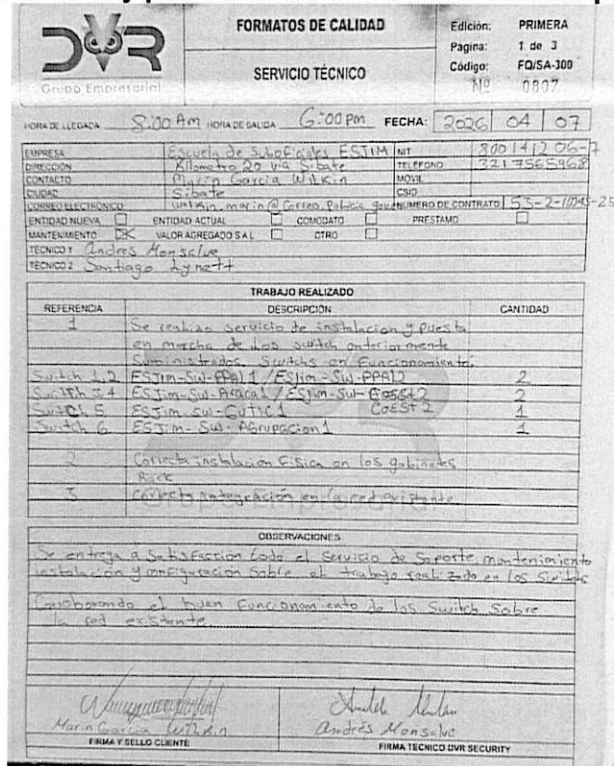 DVR
Grupo Empresarial
FORMATOS DE CALIDAD
SERVICIO TÉCNICO
Edición: PRIMERA
Pagina: 1 de 3
Código: FO/SA-300
Nº 0807
HORA DE LLEGADA 8:00 Am HORA DE SALIDA 6:00 pm FECHA: 2026 04 07
EMPRESA Escuela de Suboficiales ESJIM NIT 800141206-7
DIRECCIÓN Kilometro 20 via Sibate TELEFONO 3217565968
CONTACTO Marin Garcia Wilkin MOVIL
CIUDAD Sibate CSIO
CORREO ELECTRÓNICO wilkin.marin@correo.policia.gov NUMERO DE CONTRATO 53-2-10045-25
ENTIDAD NUEVA ENTIDAD ACTUAL COMODATO PRESTAMO
MANTENIMIENTO X VALOR AGREGADO S.A.L OTRO
TECNICO 1 Andres Monsalve
TECNICO 2 Santiago Lynett
TRABAJO REALIZADO
REFERENCIA DESCRIPCIÓN CANTIDAD
1 Se realizo servicio de instalacion y puesta
en marcha de los switch anteriormente
Suministrados. Switchs en Funcionamiento.
Switch 1,2 ESJim-SW-PPAL1 / ESJim-SW-PPAL2 2
Switch 3,4 ESJim-SW-Araca1 / ESJim-SW- 2
CoEST2
Switch 5 ESJim-SW-GUTIC1 1
Switch 6 ESJim-SW-AGrupacion1 1
2 Correcta instalacion Fisica en los gabinetes
Rack
3 correcta integración en la red existente
OBSERVACIONES
Se entrega a Satisfacción todo el Servicio de Soporte, mantenimiento
instalación y configuración Sobre el trabajo realizado en los Switch
Corroborando el buen Funcionamiento de los Switch Sobre
la red existente.
Marin Garcia Wilkin
Andrés Monsalve
FIRMA Y SELLO CLIENTE
FIRMA TECNICO DVR SECURITY